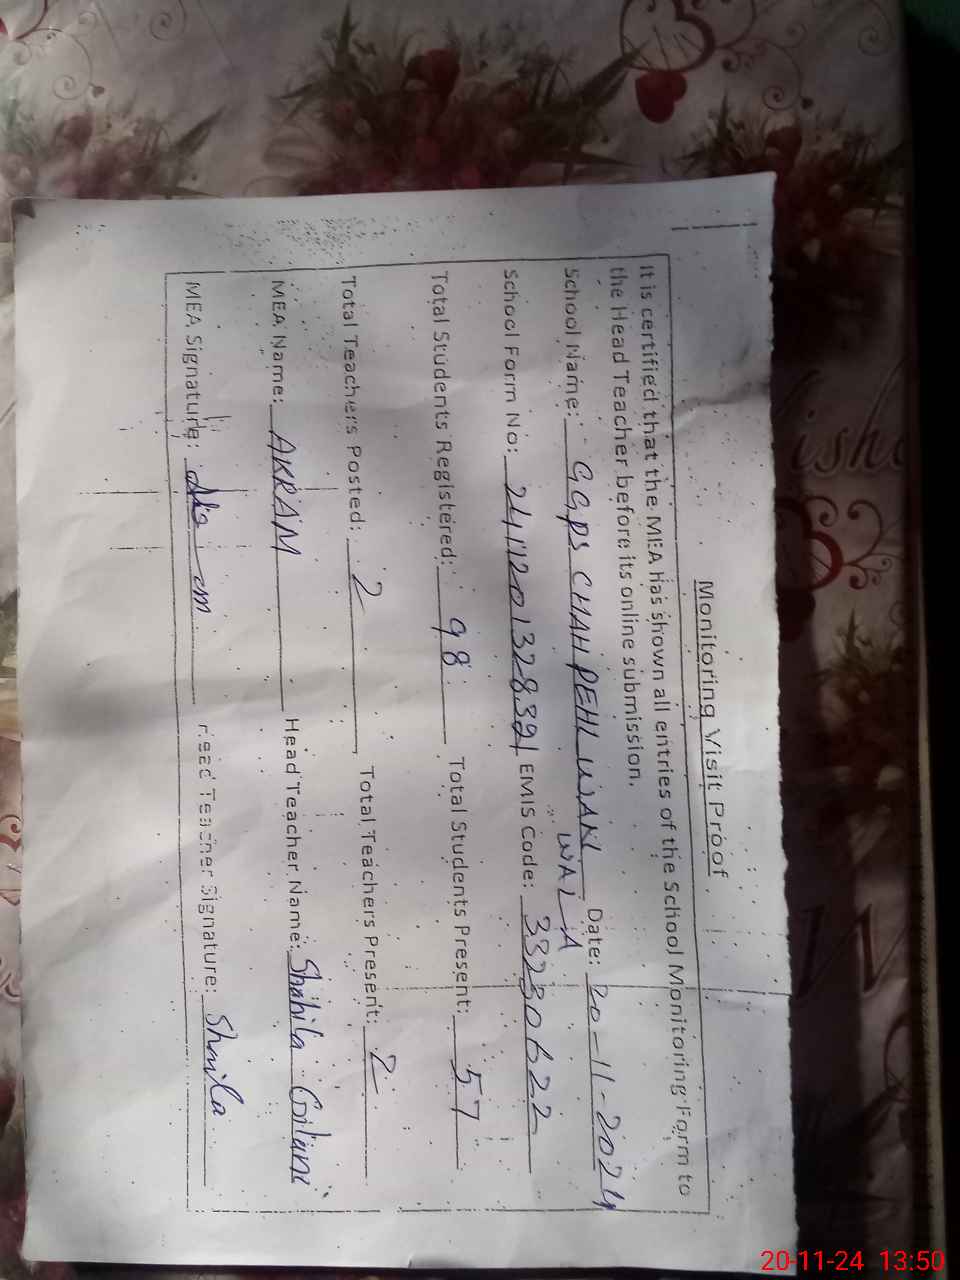 Monitoring Visit Proof
It is certified that the MEA has shown all entries of the School Monitoring Form to
the Head Teacher before its online submission.
School Name: GGPS CHAH PEHLWAN WALA Date: 20-11-2024
School Form No: 241120132839 EMIS Code: 33230622
Total Students Registered: 98 Total Students Present: 57
Total Teachers Posted: 2 Total Teachers Present: 2
MEA Name: AKRAM Head Teacher Name: Shahila Gilani
MEA Signature: Head Teacher Signature: Shaila
20-11-24 13:50